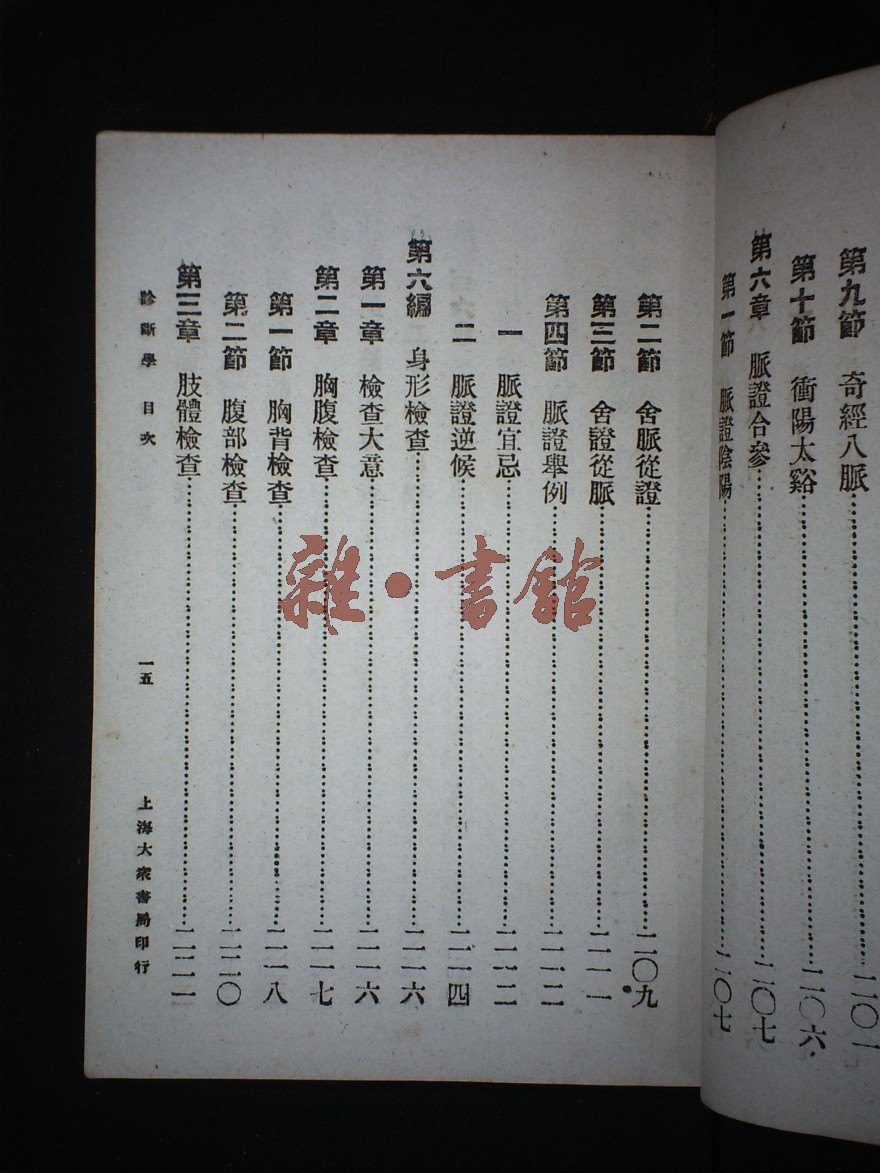 第九節　奇經八脈…………二〇一
第十節　衝陽太谿…………二〇六
第六章　脈證合參…………二〇七
第一節　脈證陰陽…………二〇七
第二節　舍脈從證…………二〇九
第三節　舍證從脈…………二一一
第四節　脈證舉例…………二一二
一　脈證宜忌…………二一二
二　脈證逆候…………二一四
第六編　身形檢查…………二一六
第一章　檢查大意…………二一六
第二章　胸腹檢查…………二一七
第一節　胸背檢查…………二一八
第二節　腹部檢查…………二二〇
第三章　肢體檢查…………二二一
診斷學　目次　一五　上海大衆書局印行
雜·書館